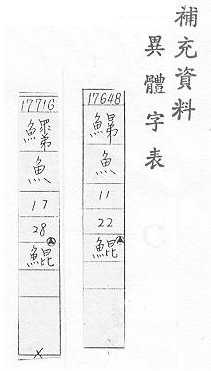 補充資料
異體字表
17648
魚
11
22
鯤
17716
魚
17
28
鯤